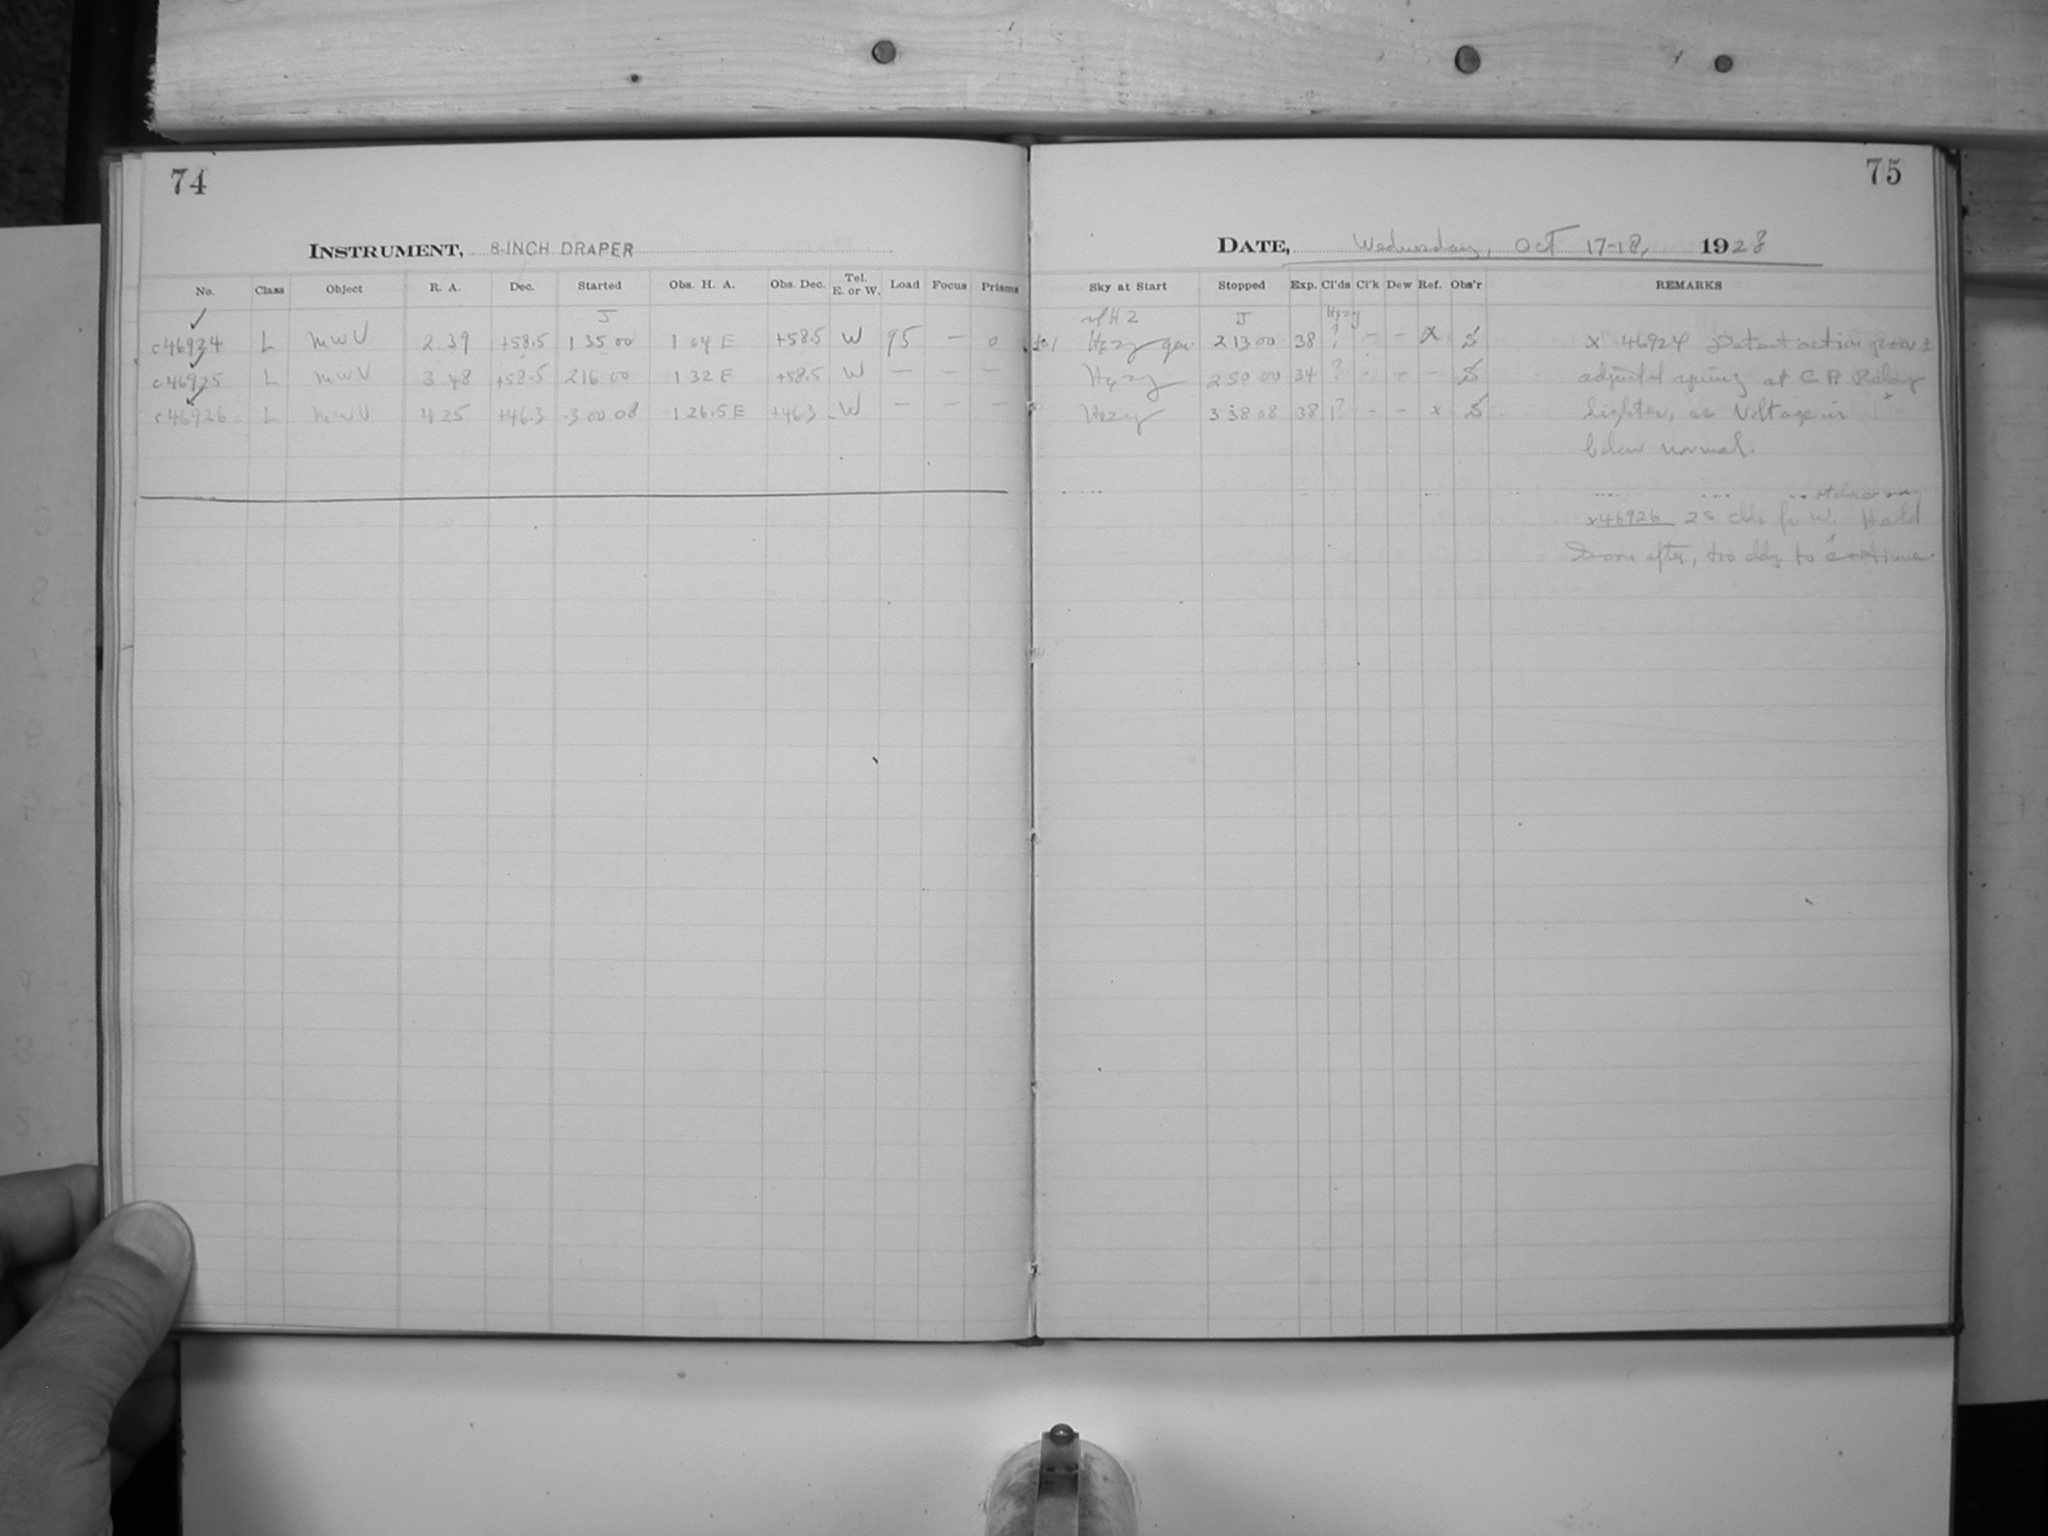 74
INSTRUMENT, 8-INCH DRAPER
No. Class Object R. A. Dec. Started Obs. H. A. Obs. Dec. Tel. E. or W. Load Focus Prisms
J
c46924 L MWU 2 39 +58.5 1 35 00 1 04 E +58.5 W 95 — 0
c46925 L MWU 3 48 +58.5 2 16 00 1 32 E +58.5 W — — —
c46926 L MWU 4 25 +46.3 3 00 08 1 26.5 E +46.3 W — — —
75
DATE, Wednesday, Oct 17-18, 1928
Sky at Start Stopped Exp. Cl'ds Cl'k Dew Ref. Obs'r REMARKS
J Hzy
Hzy 2 13 00 38 ? - - x S x 46924
Hzy 2 50 00 34 ? - - - S adjusted spring at C R Relay
Hzy 3 38 08 38 1? - - x S lighter, as Voltage is
below normal.
x46926 25 clds fr W.
Soon after, too cldy to continue